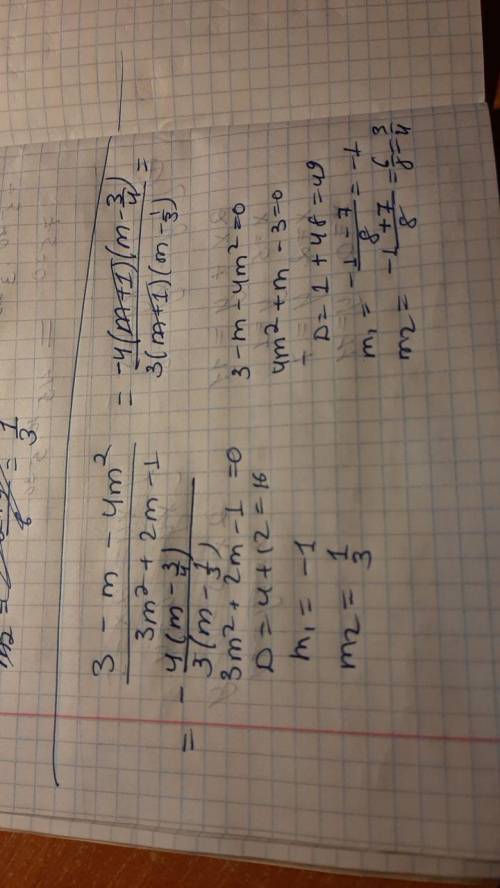 3 - m - 4m² / 3m² + 2m - 1 = -4(m+1)(m - 3/4) / 3(m+1)(m - 1/3) =
= - 4(m - 3/4) / 3(m - 1/3)
3m² + 2m - 1 = 0
D = 4 + 12 = 16
m₁ = -1
m₂ = 1/3
3 - m - 4m² = 0
4m² + m - 3 = 0
D = 1 + 48 = 49
m₁ = -1 - 7 / 8 = -1
m₂ = -1 + 7 / 8 = 6/8 = 3/4